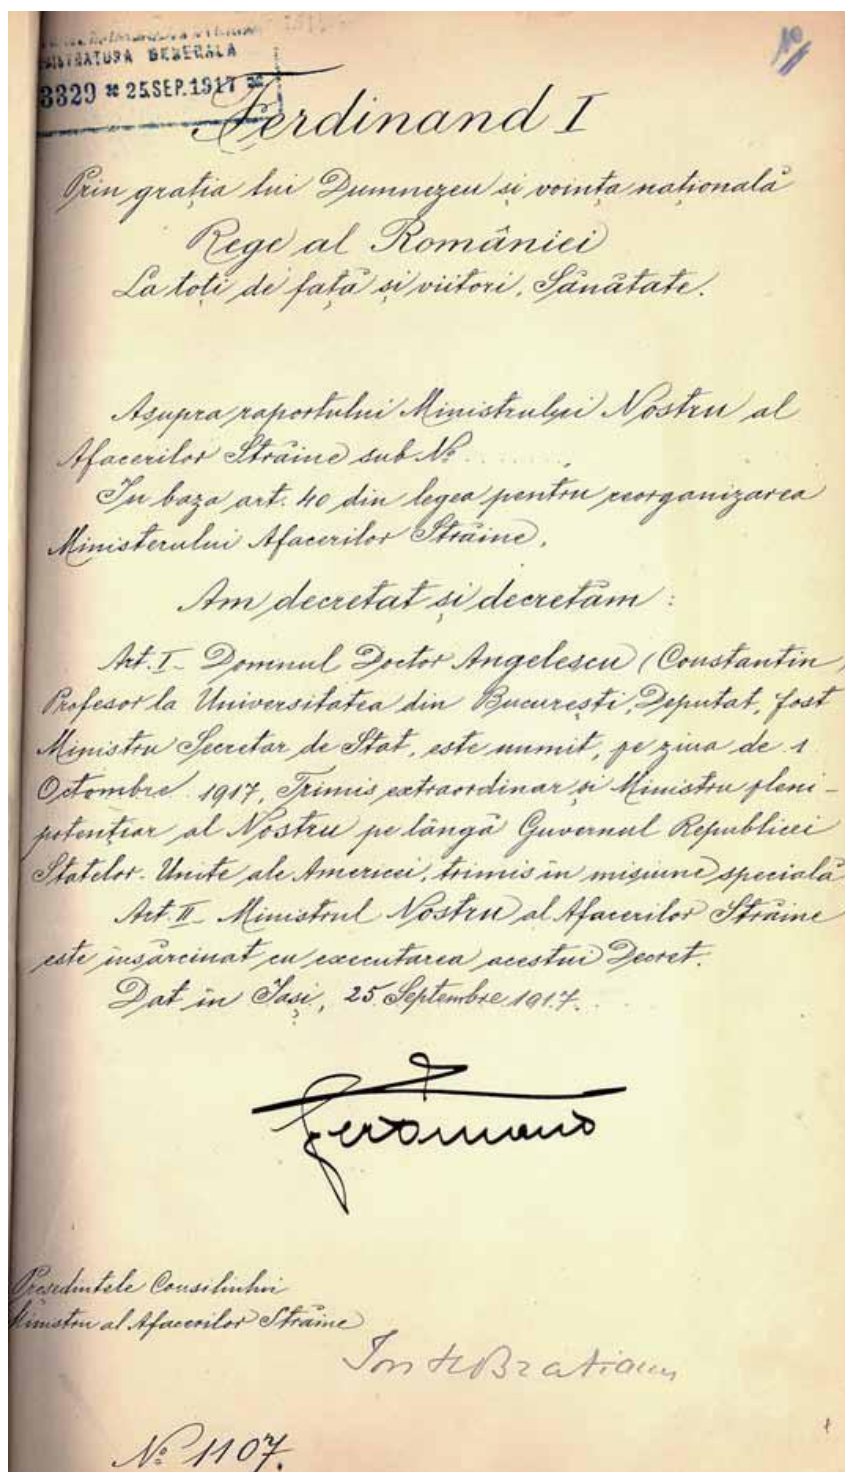 GENERALA
3329 * 25 SEP. 1917 *
10
Ferdinand I
Prin grația lui Dumnezeu și voința națională
Rege al României
La toți de față și viitori, Sănătate.
Asupra raportului Ministrului Nostru al
Afacerilor Străine sub № ..........,
In baza art. 40 din legea pentru reorganizarea
Ministerului Afacerilor Străine,
Am decretat și decretăm :
Art. I_ Domnul Doctor Angelescu (Constantin)
Profesor la Universitatea din București, Deputat, fost
Ministru Secretar de Stat, este numit, pe ziua de 1
Octombre 1917, Trimis extraordinar și Ministru pleni-
potențiar al Nostru pe lângă Guvernul Republicei
Statelor-Unite ale Americei, trimis în misiune specială
Art. II_ Ministrul Nostru al Afacerilor Străine
este însărcinat cu executarea acestui Decret.
Dat în Iași, 25 Septembre 1917.
Ferdinand
Președintele Consiliului
Ministru al Afacerilor Străine
Ion I C Bratianu
№ 1107.